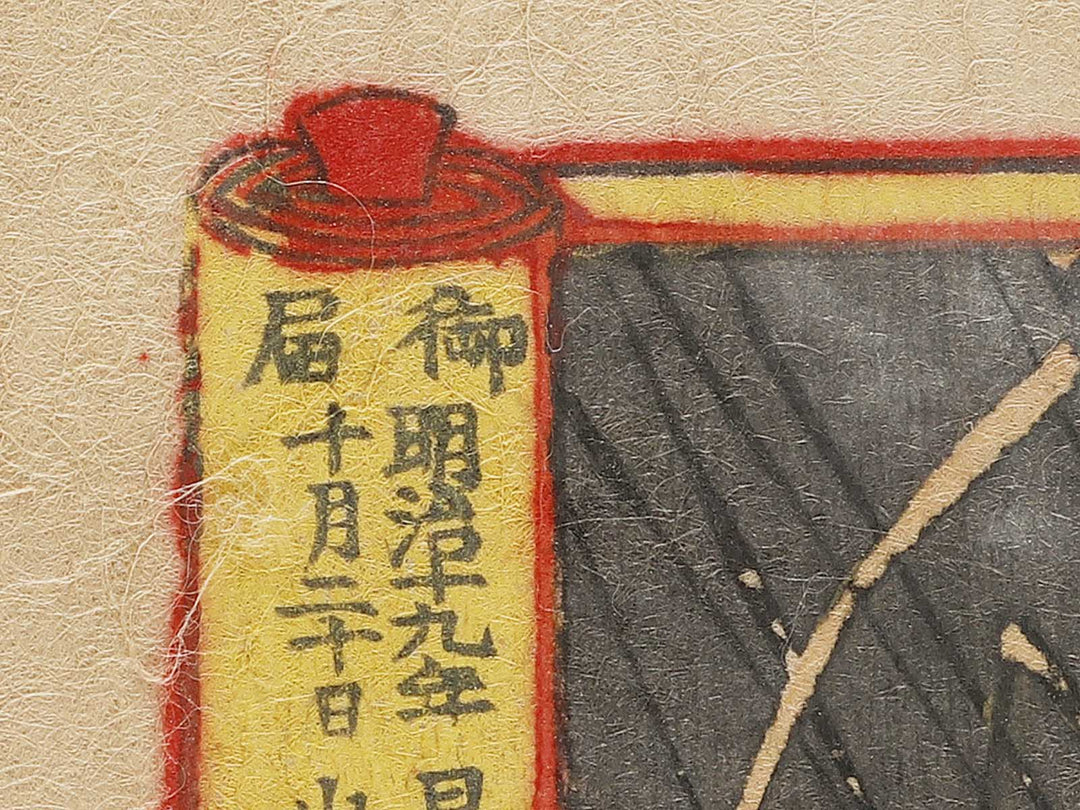 御届
明治十九年
十月二十日